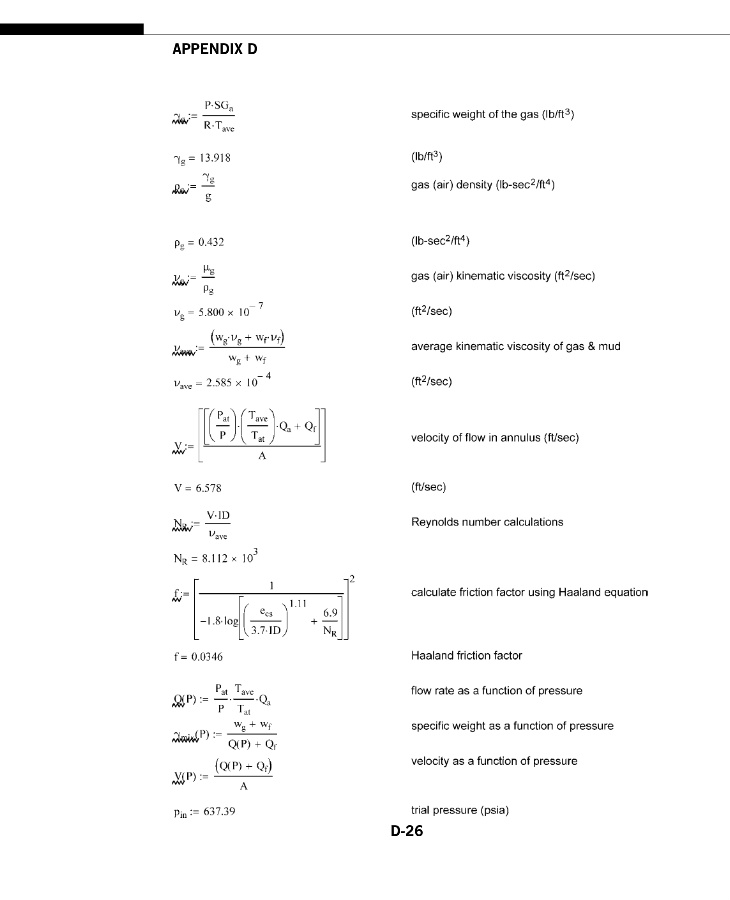 APPENDIX D
γg := P·SGa / R·Tave specific weight of the gas (lb/ft³)
γg = 13.918 (lb/ft³)
ρg := γg / g gas (air) density (lb-sec²/ft⁴)
ρg = 0.432 (lb-sec²/ft⁴)
νg := μg / ρg gas (air) kinematic viscosity (ft²/sec)
νg = 5.800 × 10⁻⁷ (ft²/sec)
νave := (wg·νg + wf·νf) / wg + wf average kinematic viscosity of gas & mud
νave = 2.585 × 10⁻⁴ (ft²/sec)
V := [[(Pat / P)·(Tave / Tat)·Qa + Qf] / A] velocity of flow in annulus (ft/sec)
V = 6.578 (ft/sec)
NR := V·ID / νave Reynolds number calculations
NR = 8.112 × 10³
f := [1 / −1.8·log[(ecs / 3.7·ID)^1.11 + 6.9 / NR]]² calculate friction factor using Haaland equation
f = 0.0346 Haaland friction factor
Q(P) := Pat / P · Tave / Tat ·Qa flow rate as a function of pressure
γmix(P) := wg + wf / Q(P) + Qf specific weight as a function of pressure
V(P) := (Q(P) + Qf) / A velocity as a function of pressure
pin := 637.39 trial pressure (psia)
D-26